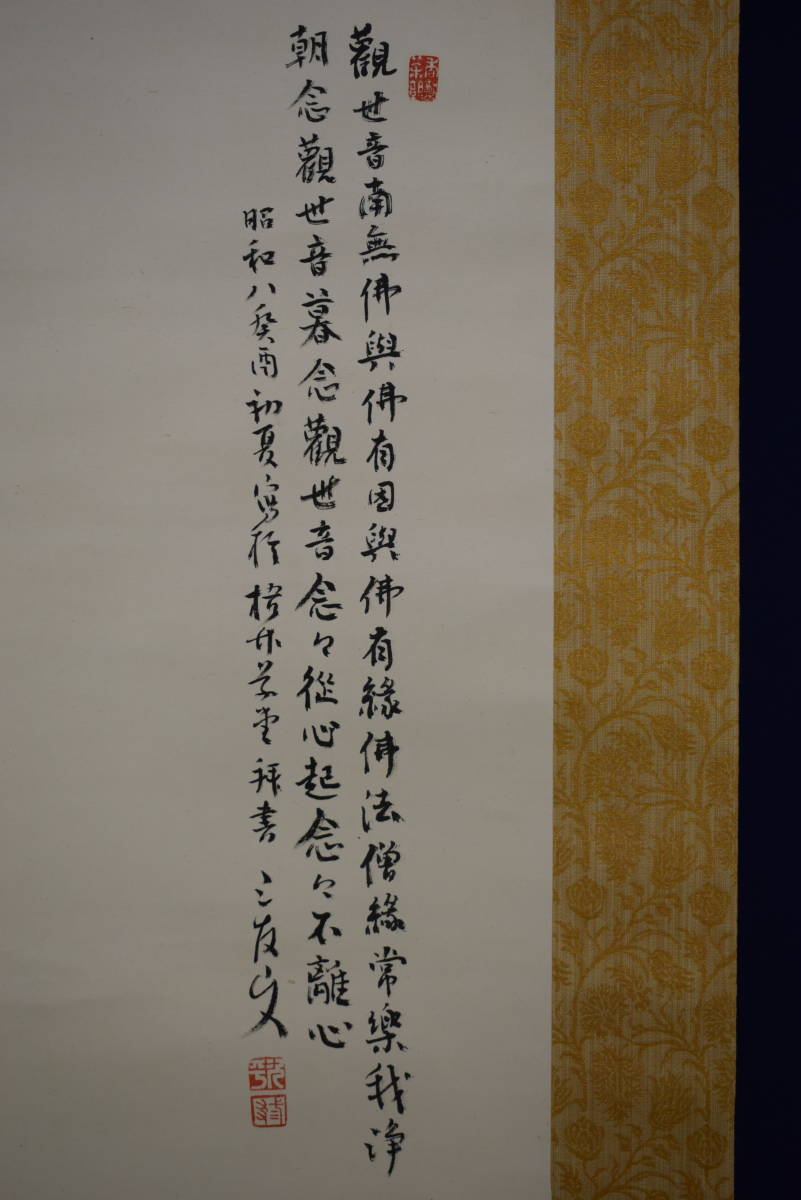 觀世音南無佛與佛有因與佛有緣佛法僧緣常樂我淨
朝念觀世音暮念觀世音念々從心起念々不離心
昭和八癸酉初夏寫於梧竹草堂拜書